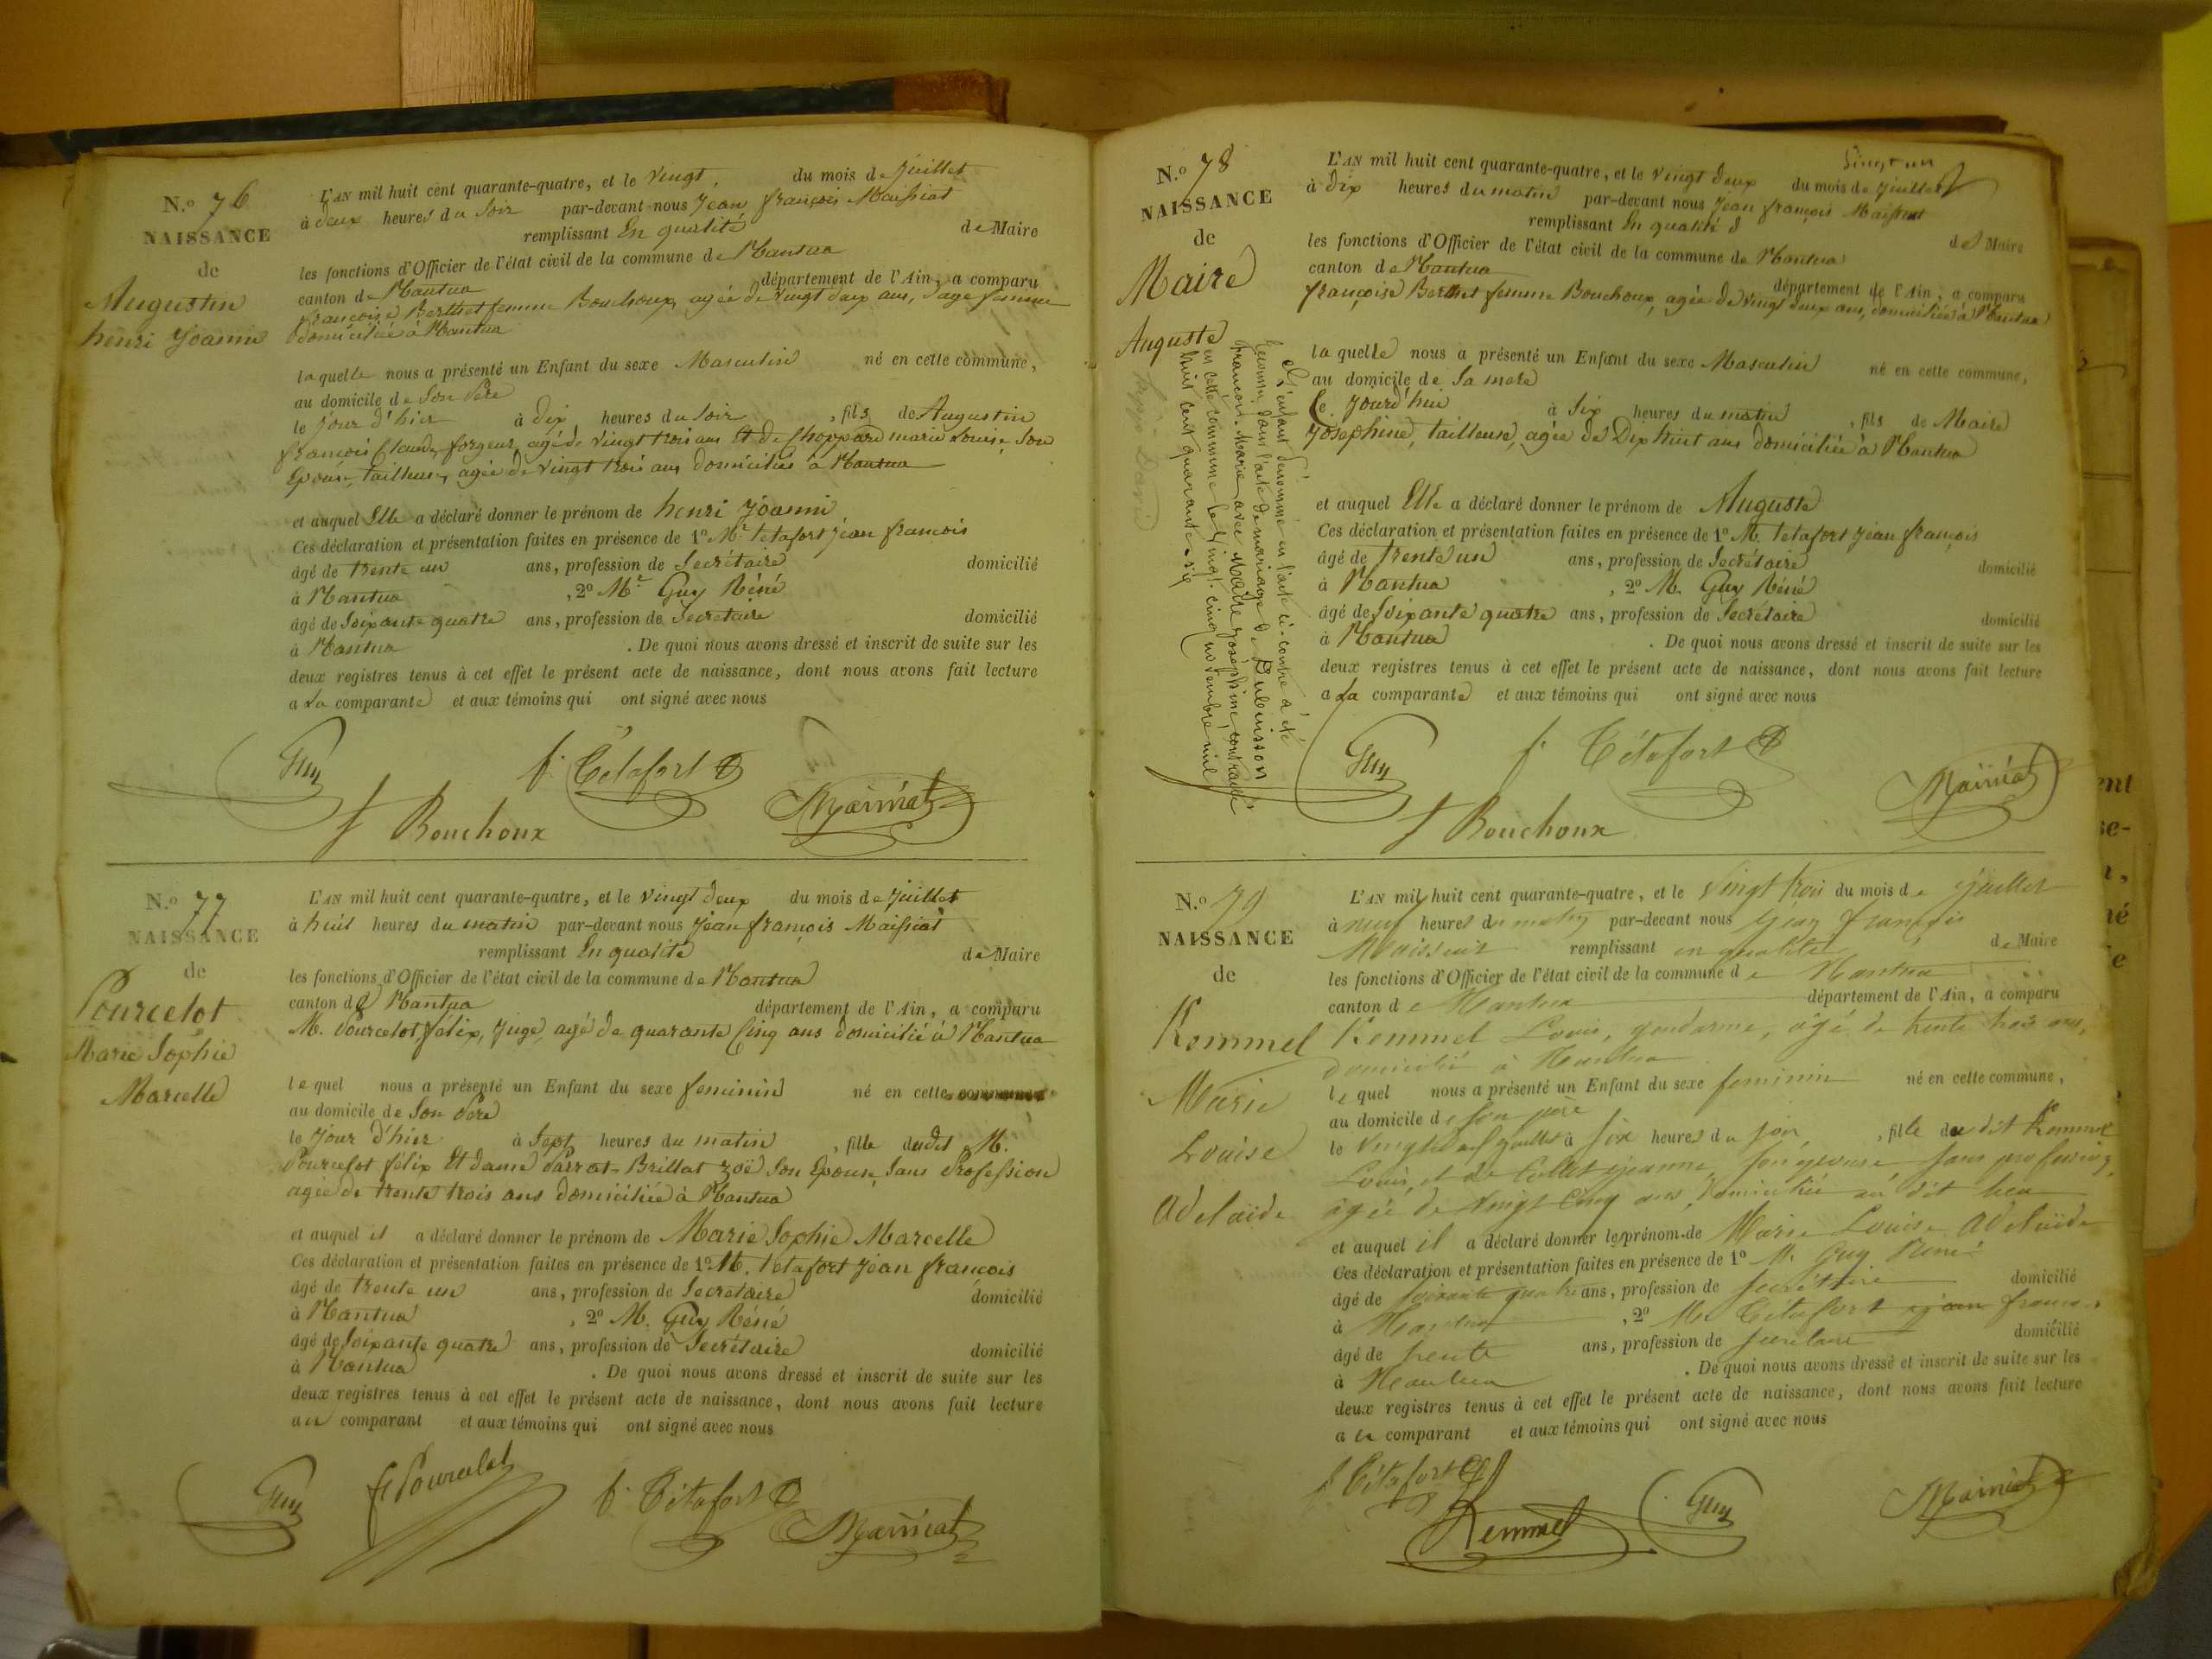 N.o 76
NAISSANCE
de
Augustin
henri Joanni
L'AN mil huit cent quarante-quatre, et le vingt, du mois de juillet
à deux heures du soir par-devant-nous Jean françois Maissiat
remplissant En qualité de Maire
les fonctions d'Officier de l'état civil de la commune de Nantua
canton de Nantua département de l'Ain, a comparu
françoise Berthet femme Bouchoux, agée de vingt deux ans, sage femme
domiciliée à Nantua
laquelle nous a présenté un Enfant du sexe Masculin né en cette commune,
au domicile de Son Père
le jour d'hier à dix heures du soir, fils de Augustin
françois Claude, forgeur, agé de vingt trois ans Et de Choppard marie Louise, Son
Epouse, tailleuse, agée de vingt trois ans domiciliés à Nantua
et auquel Elle a déclaré donner le prénom de henri Joanni
Ces déclaration et présentation faites en présence de 1o Mr tetafort Jean francois
âgé de trente un ans, profession de Secrétaire domicilié
à Nantua, 2o Mr Guy Réné
âgé de Soixante quatre ans, profession de Secretaire domicilié
à Nantua. De quoi nous avons dressé et inscrit de suite sur les
deux registres tenus à cet effet le présent acte de naissance, dont nous avons fait lecture
a La comparante et aux témoins qui ont signé avec nous
Guy f. Tétafort Maissiat
f Bouchoux
N.o 77
NAISSANCE
de
Pourcelot
Marie Sophie
Marcelle
L'AN mil huit cent quarante-quatre, et le vingt deux du mois de juillet
à huit heures du matin par-devant nous Jean françois Maissiat
remplissant En qualité de Maire
les fonctions d'Officier de l'état civil de la commune de Nantua
canton de Nantua département de l'Ain, a comparu
M. Pourcelot, félix, Juge, agé de quarante Cinq ans domicilié à Nantua
lequel nous a présenté un Enfant du sexe feminin né en cette commune
au domicile de Son Père
le jour d'hier à Sept heures du matin, fille dudit M.
Pourcelot félix Et dame Parrat-Brillat zoë Son Epouse, Sans Profession
agée de trente trois ans domiciliée à Nantua
et auquel il a déclaré donner le prénom de Marie Sophie Marcelle
Ces déclaration et présentation faites en présence de 1o M. tetafort Jean francois
âgé de trente un ans, profession de Secretaire domicilié
à Nantua, 2o M. Guy Réné
âgé de Soixante quatre ans, profession de Secrétaire domicilié
à Nantua. De quoi nous avons dressé et inscrit de suite sur les
deux registres tenus à cet effet le présent acte de naissance, dont nous avons fait lecture
au comparant et aux témoins qui ont signé avec nous
Guy f Pourcelot f. Tétafort Maissiat
N.o 78
NAISSANCE
de
Maire
Auguste
L'enfant dénommé en l'acte ci-contre a été
reconnu dans l'acte de mariage de Dubuisson
francois-Marie, avec Maire Joséphine, contracté
en cette commune le vingt-cinq novembre mil
huit cent quarante-six
vingt un
L'AN mil huit cent quarante-quatre, et le vingt deux du mois de juillet
à dix heures du matin par-devant nous Jean françois Maissiat
remplissant En qualité de Maire
les fonctions d'Officier de l'état civil de la commune de Nantua
canton de Nantua département de l'Ain, a comparu
françoise Berthet femme Bouchoux, agée de vingt deux ans, domiciliée à Nantua
laquelle nous a présenté un Enfant du sexe Masculin né en cette commune,
au domicile de Sa mere
le jourd'hui à Six heures du matin, fils de Maire
Josephine, tailleuse, agée de Dix huit ans domiciliée à Nantua
et auquel Elle a déclaré donner le prénom de Auguste
Ces déclaration et présentation faites en présence de 1o M. tetafort Jean françois
âgé de trente un ans, profession de Secrétaire domicilié
à Nantua, 2o M. Guy Réné
âgé de Soixante quatre ans, profession de Secrétaire domicilié
à Nantua. De quoi nous avons dressé et inscrit de suite sur les
deux registres tenus à cet effet le présent acte de naissance, dont nous avons fait lecture
a La comparante et aux témoins qui ont signé avec nous
Guy f. Tétafort Maissiat
f Bouchoux
N.o 79
NAISSANCE
de
Kemmel
Marie
Louise
adelaïde
L'AN mil huit cent quarante-quatre, et le vingt trois du mois de juillet
à neuf heures du matin par-devant nous Jean françois
Maissiat remplissant en qualité de Maire
les fonctions d'Officier de l'état civil de la commune de Nantua
canton de Nantua département de l'Ain, a comparu
Kemmel Louis, gendarme, âgé de trente trois ans,
domicilié à Nantua
lequel nous a présenté un Enfant du sexe feminin né en cette commune,
au domicile de son père
le juillet à six heures du soir, fille du dit Kemmel
Louis, et de Collet jeanne, son épouse sans profession,
âgée de vingt cinq ans, domiciliée au dit lieu
et auquel il a déclaré donner les prénom de Marie Louise adelaïde
Ces déclaration et présentation faites en présence de 1o M. Guy René
âgé de soixante quatre ans, profession de secrétaire domicilié
à Nantua, 2o M. Tétafort jean francois
âgé de trente ans, profession de secrétaire domicilié
à Nantua. De quoi nous avons dressé et inscrit de suite sur les
deux registres tenus à cet effet le présent acte de naissance, dont nous avons fait lecture
a u comparant et aux témoins qui ont signé avec nous
f Tétafort Kemmel Guy Maissiat